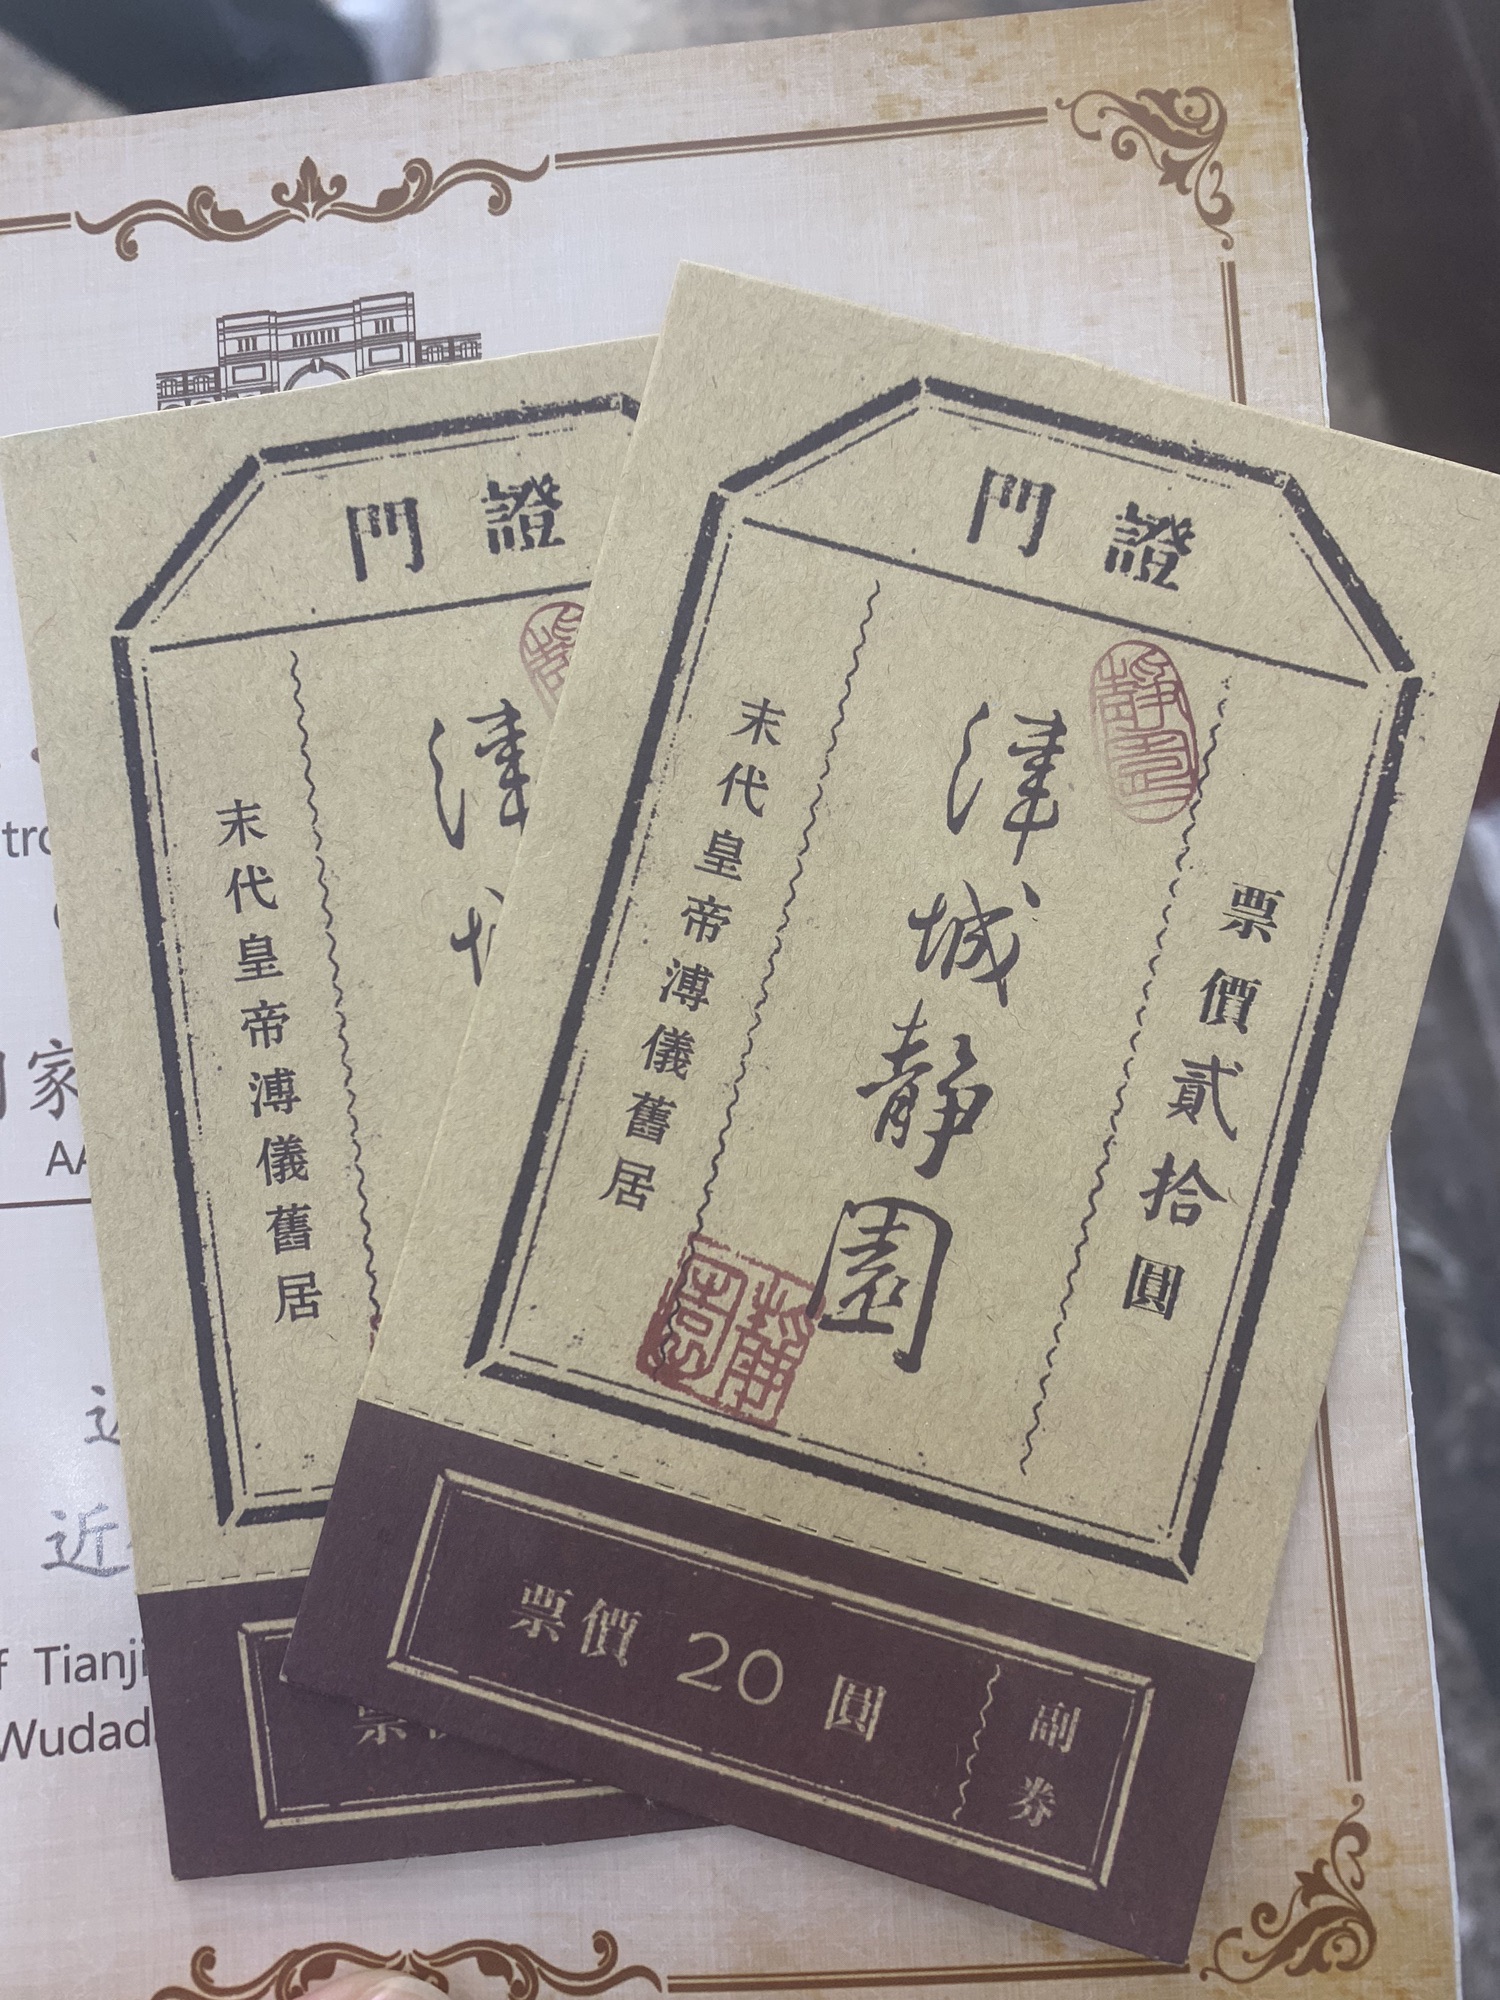 門證
津
末代皇帝溥儀舊居
門證
票價貳拾圓
津城靜園
末代皇帝溥儀舊居
靜園
靜園
票價 20 圓
副券
票
家
AA
近
Tianji
Wudad